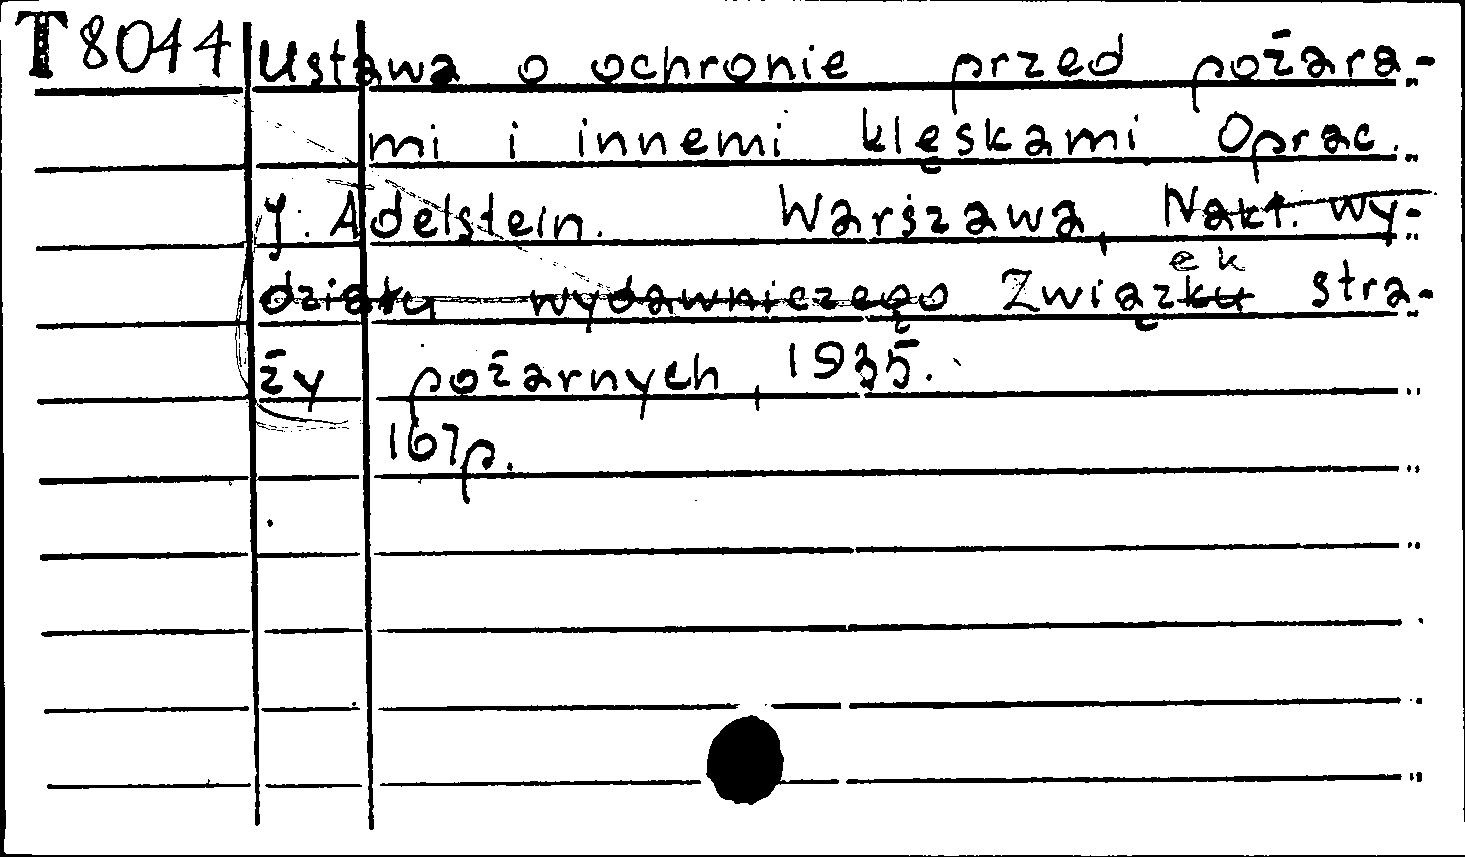 T 8044 Ustawa o ochronie przed pożara-
mi i innemi klęskami Oprac.
J. Adelstein. Warszawa, Nakł. wy-
działu wydawniczego Związku ek stra-
ży pożarnych, 1935.
167p.